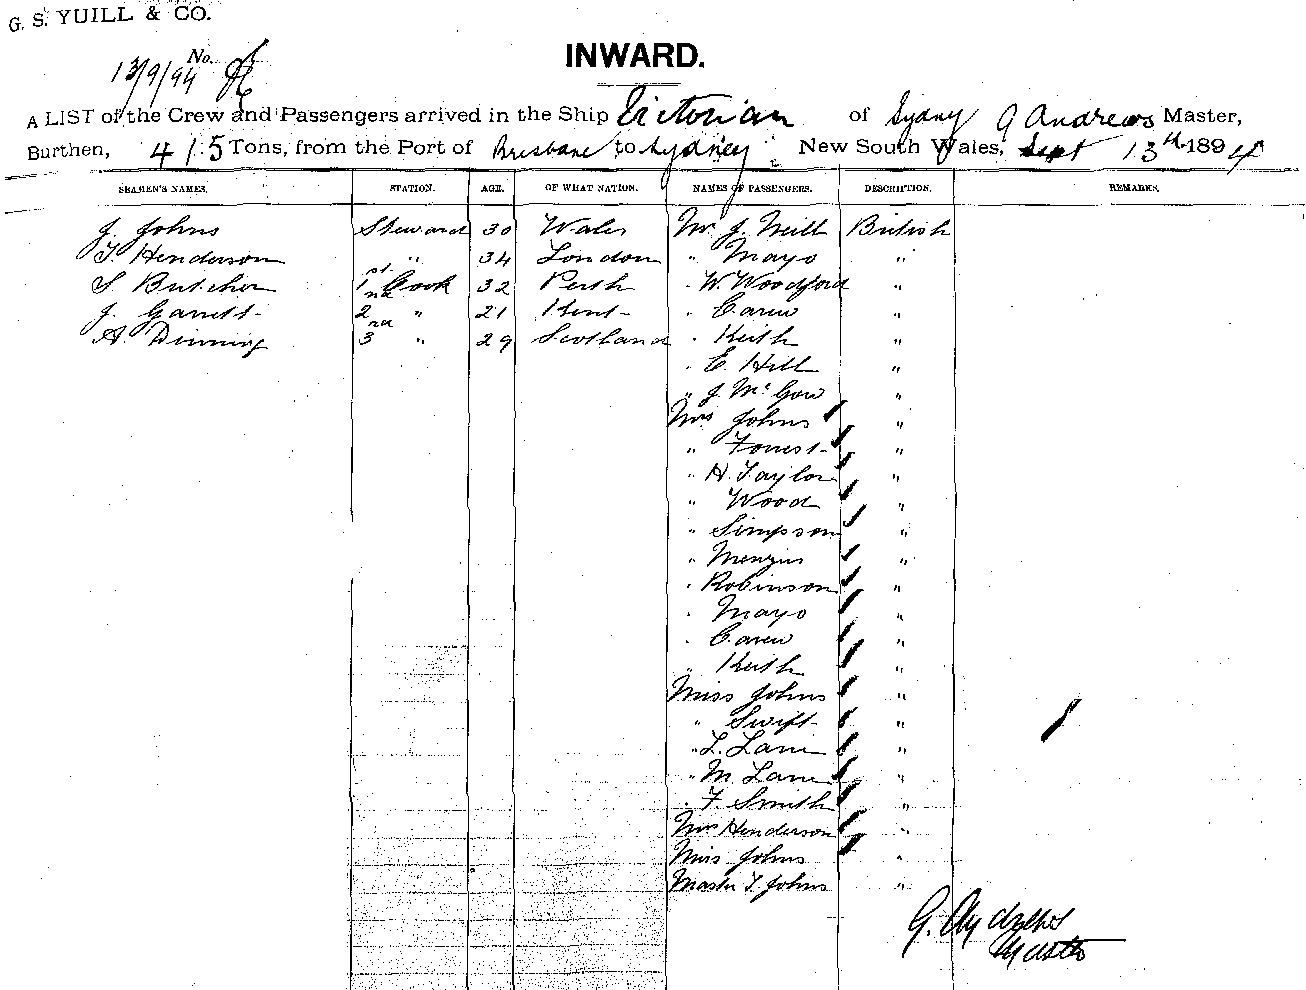 G. S. YUILL & CO.
No.
13/9/94
INWARD.
A LIST of the Crew and Passengers arrived in the Ship Victorian of Sydney G Andrews Master,
Burthen, 415 Tons, from the Port of Brisbane to Sydney New South Wales, Sept 13th 1894
SEAMEN'S NAMES. STATION. AGE. OF WHAT NATION. NAMES OF PASSENGERS. DESCRIPTION. REMARKS.
J. Johns Steward 30 Wales Mr J. Neill British
T Henderson " 34 London " Mayo "
S Butcher 1st Cook 32 Perth " W. Woodford "
J. Garrett 2nd " 21 Kent " Carew "
A. Dinning 3rd " 29 Scotland " Keith "
" E. Hill "
" J. McGow "
Mrs Johns "
" Forrest "
" H. Taylor "
" Wood "
" Simpson "
" Menzies "
" Robinson "
" Mayo "
" Carew "
" Keith "
Miss Johns "
" Swift "
" L. Lane "
" M. Lane "
" F. Smith "
Mrs Henderson "
Miss Johns "
Master T. Johns "
G. Andrews
Master